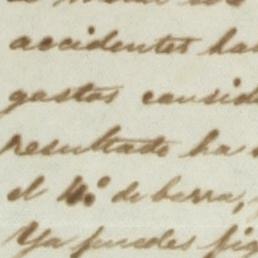 accidentes ha
gastos consid
resultado ha
el 4.º de barra,
Ya puedes fig